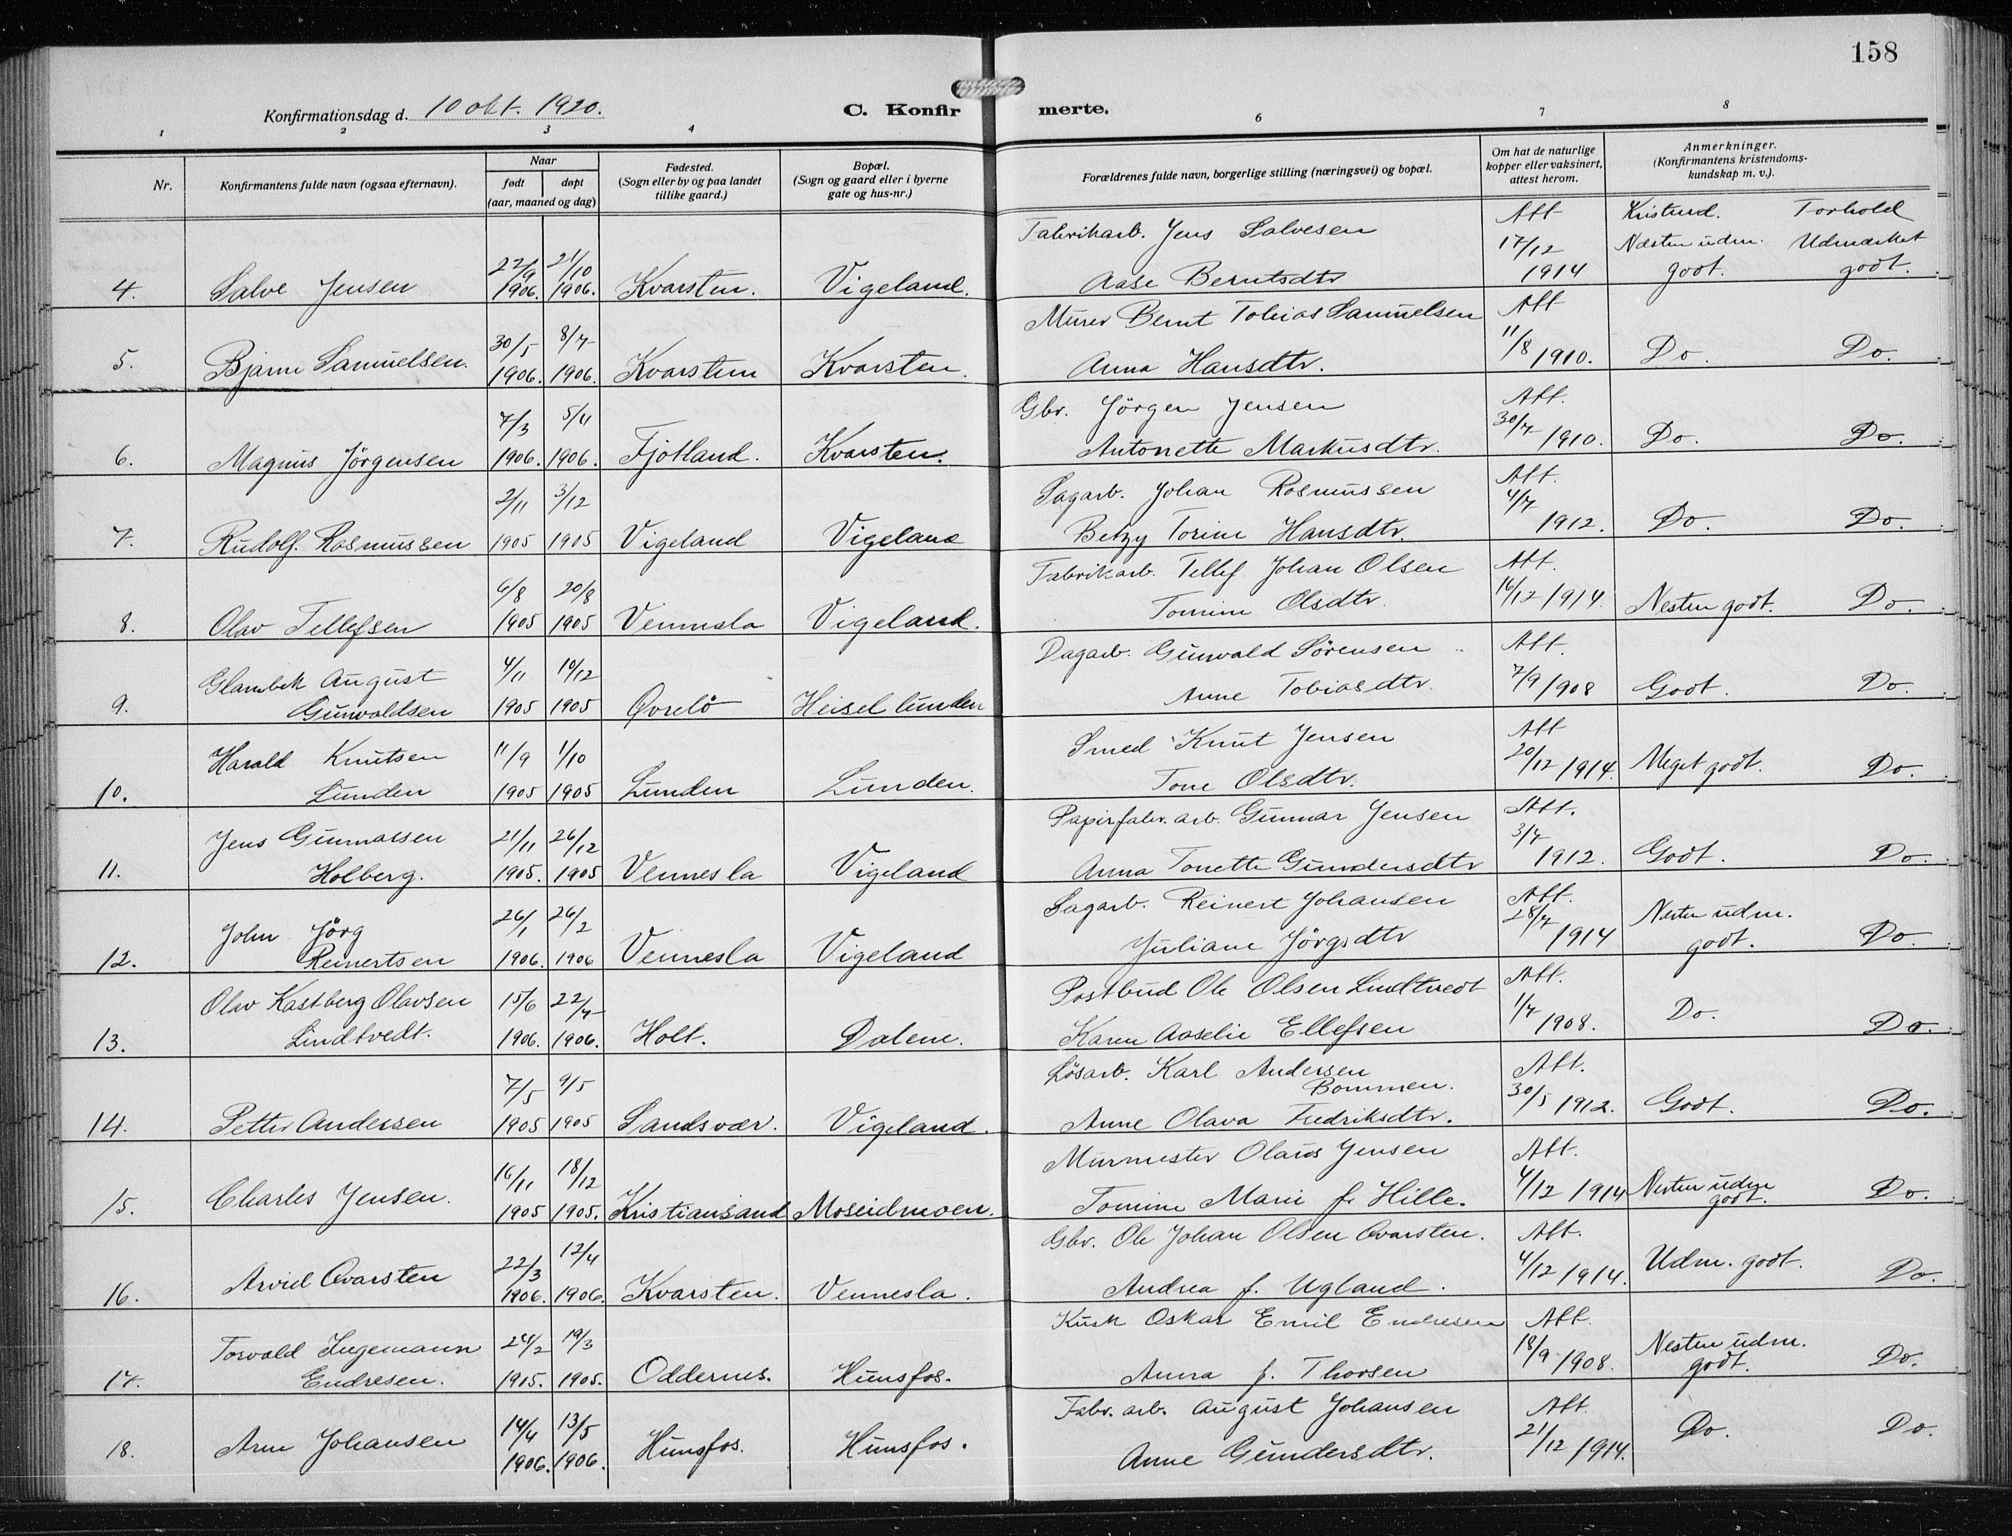 158
Konfirmationsdag d. 10 okt. 1920.
C. Konfirmerte.
1 2 3 4 5 6 7 8
Nr.
Konfirmantens fulde navn (ogsaa efternavn).
Naar
født døpt
(aar, maaned og dag)
Fødested.
(Sogn eller by og paa landet
tillike gaard.)
Bopæl.
(Sogn og gaard eller i byerne
gate og hus-nr.)
Forældrenes fulde navn, borgerlige stilling (næringsvei) og bopæl.
Om hat de naturlige
kopper eller vaksinert,
attest herom.
Anmerkninger.
(Konfirmantens kristendoms-
kundskap m. v.).
Kristend. Forhold
4. Salve Jensen 22/9 1906. 21/10 1906. Kvarsten. Vigeland. Fabrikarb. Jens Salvesen
Aase Berntsdtr Att 17/12 1914 Næsten udm. godt. Udmærket godt.
5. Bjarne Samuelsen. 30/5 1906. 8/7 1906. Kvarsten Kvarsten. Murer Bernt Tobias Samuelsen
Anna Hansdtr. Att 11/8 1910. Do. Do.
6. Magnus Jörgensen 7/3 1906. 5/4 1906. Fjotland. Kvarsten. Gbr. Jörgen Jensen
Antonette Markusdtr. Att. 30/7 1910. Do. Do.
7. Rudolf Rasmussen 2/11 1905 3/12 1905 Vigeland Vigeland Sagarb. Johan Rasmussen
Betzy Torine Hansdtr. Att. 4/7 1912. Do. Do.
8. Olav Tellefsen 6/8 1905 20/8 1905 Vennesla Vigeland. Fabrikarb. Tellef Johan Olsen
Tomine Olsdtr. Att. 16/12 1914. Nesten godt. Do.
9. Glambek August
Gunvaldsen 4/11 1905 10/12 1905 Øvrebö Heisel lunden Dagarb. Gunvald Sörensen
Anne Tobiasdtr. Att. 7/9 1908 Godt. Do.
10. Harald Knutsen
Lunden 11/9 1905 1/10 1905 Lunden Lunden. Smed Knut Jensen
Tone Olsdtr. Att 20/12 1914. Meget godt. Do.
11. Jens Gunnarsen
Holberg. 21/11 1905. 26/12 1905 Vennesla Vigeland Papirfabr. arb. Gunnar Jensen
Anna Tonette Gundersdtr Att. 3/7 1912. Godt. Do.
12. John Jörg
Reinertsen 26/1 1906. 26/2 1906 Vennesla Vigeland Sagarb. Reinert Johansen
Juliane Jörgsdtr Att. 28/7 1914 Nesten udm. godt. Do.
13. Olav Kastberg Olavsen
Lindtvedt. 15/6 1906. 22/7 1906. Holt. Dalene. Postbud Ole Olsen Lindtvedt
Karen Aaselie Ellefsen Att. 1/7 1908. Do. Do.
14. Petter Andersen 7/5 1905 9/5 1905 Sandsvær. Vigeland. Lösarb. Karl Andersen
Bommen.
Anne Olava Fredriksdtr. Att. 30/5 1912. Godt. Do.
15. Charles Jensen. 16/11 1905 18/12 1905. Kristiansand Moseidmoen. Murmester Olaus Jensen
Tomine Marie f. Hille. Att. 4/12 1914 Nesten udm godt. Do.
16. Arvid Qvarsten 22/3 1906. 12/4 1906. Kvarsten. Vennesla. Gbr. Ole Johan Olsen Qvarsten.
Andrea f. Ugland. Att. 4/12 1914. Udm. godt. Do.
17. Torvald Ingemann
Endresen. 24/2 1905. 19/3 1905. Oddernes. Hunsfos. Kusk Oskar Emil Endresen
Anna f. Thorsen Att. 18/9 1908. Nesten udm. godt. Do.
18. Arne Johansen 14/4 1906. 13/5 1906. Hunsfos. Hunsfos. Fabr. arb. August Johansen
Anne Gundersdtr. Att. 21/12 1914. Do. Do.